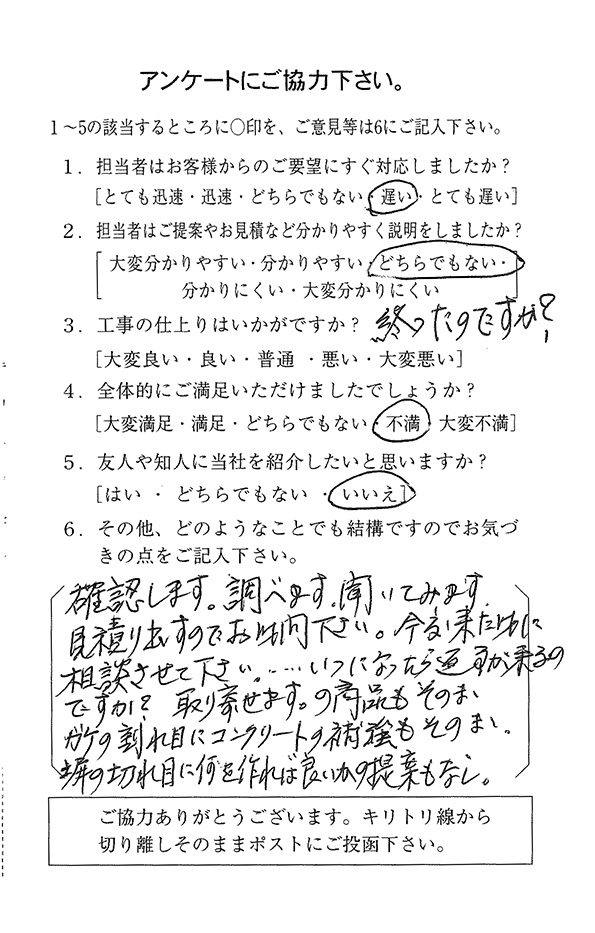 アンケートにご協力下さい。
1～5の該当するところに○印を、ご意見等は6にご記入下さい。
1．担当者はお客様からのご要望にすぐ対応しましたか？
[とても迅速・迅速・どちらでもない・遅い・とても遅い]
2．担当者はご提案やお見積など分かりやすく説明をしましたか？
[大変分かりやすい・分かりやすい・どちらでもない・
分かりにくい・大変分かりにくい]
3．工事の仕上りはいかがですか？ 終ったのですか？
[大変良い・良い・普通・悪い・大変悪い]
4．全体的にご満足いただけましたでしょうか？
[大変満足・満足・どちらでもない・不満・大変不満]
5．友人や知人に当社を紹介したいと思いますか？
[はい・どちらでもない・いいえ]
6．その他、どのようなことでも結構ですのでお気づ
きの点をご記入下さい。
確認します。調べます。聞いてみます。
見積り出すのでお待下さい。今度来た時に
相談させて下さい。……いつになったら返事が来るの
ですか？ 取り寄せます。の商品もそのまま
ガケの割れ目にコンクリートの補強もそのまま。
塀の切れ目に何を作れば良いかの提案もなし。
ご協力ありがとうございます。キリトリ線から
切り離しそのままポストにご投函下さい。